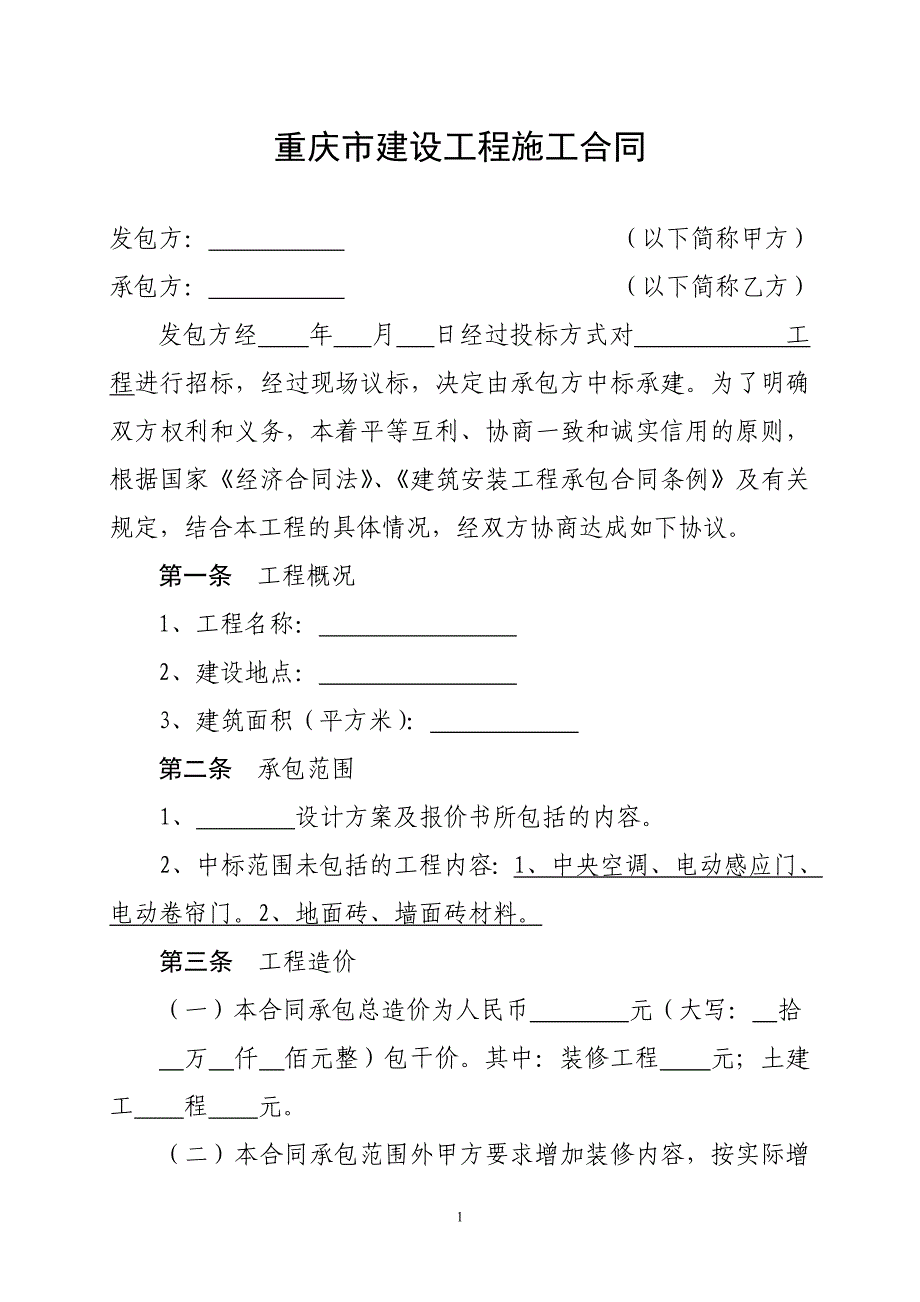 重庆市建设工程施工合同
发包方：___________ （以下简称甲方）
承包方：___________ （以下简称乙方）
发包方经____年___月___日经过投标方式对____________工
程进行招标，经过现场议标，决定由承包方中标承建。为了明确
双方权利和义务，本着平等互利、协商一致和诚实信用的原则，
根据国家《经济合同法》、《建筑安装工程承包合同条例》及有关
规定，结合本工程的具体情况，经双方协商达成如下协议。
第一条 工程概况
1、工程名称：________________
2、建设地点：________________
3、建筑面积（平方米）：____________
第二条 承包范围
1、________设计方案及报价书所包括的内容。
2、中标范围未包括的工程内容：1、中央空调、电动感应门、
电动卷帘门。2、地面砖、墙面砖材料。
第三条 工程造价
（一）本合同承包总造价为人民币________元（大写：__拾
__万__仟__佰元整）包干价。其中：装修工程____元；土建
工____程____元。
（二）本合同承包范围外甲方要求增加装修内容，按实际增
1